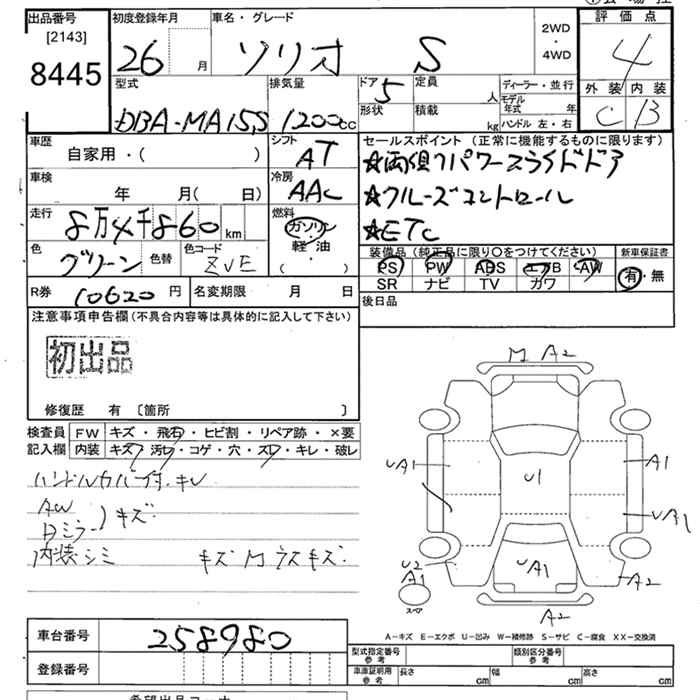 出品番号 初度登録年月 車名・グレード 2WD 評価点
[2143]
8445 26 月 ソリオ S 4WD 4
型式 排気量 ドア 5 定員 人 ディーラー・並行 外装 内装
DBA-MA15S 1200cc 形状 積載 kg モデル年式 年 ハンドル 左・右 C B
車歴 シフト セールスポイント (正常に機能するものに限ります)
自家用・( ) AT ★両側パワースライドドア
車検 冷房
年 月( 日) AAC ★クルーズコントロール
走行 8万4千860 km 燃料 ガソリン ★ETC
色 グリーン 色替 色コード ZVE 軽油 ・( ) 装備品 (純正品に限り○をつけてください) 新車保証書
PS PW ABS エアB AW 有・無
R券 10620 円 名変期限 月 日 SR ナビ TV カワ
注意事項申告欄(不具合内容等は具体的に記入して下さい) 後日品
初出品
修復歴 有 〔箇所 〕
検査員 FW キズ・飛石・ヒビ割・リペア跡・×要
記入欄 内装 キズ・汚レ・コゲ・穴・スレ・キレ・破レ
ハンドルカバー付.キレ
AW
Dミラー )キズ
内装シミ キズ M ラスキズ.
M A2
UA1 A1
U1
UB1
U2 UA1
A1 A2
スペア
A2
A-キズ E-エクボ U-凹み W-補修跡 S-サビ C-腐食 XX-交換済
車台番号 258980 型式指定番号 参考 類別区分番号 参考
登録番号 車庫証明用 参考 長さ cm 幅 cm 高さ cm